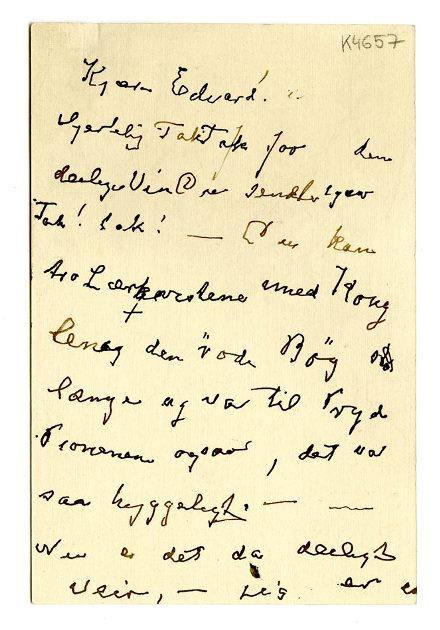 K4657
Kjære Edvard!
hjertelig Tak Tak for den
deilige Vin sender
Tak! Tak! — Du kan
tro Lærkeqvistene med Kong
len og den røde Bøg
længe og var til Pryd
Pionerne ogsaa, det var
saa hyggeligt. — —
Nu er det da deiligt
Veir, —